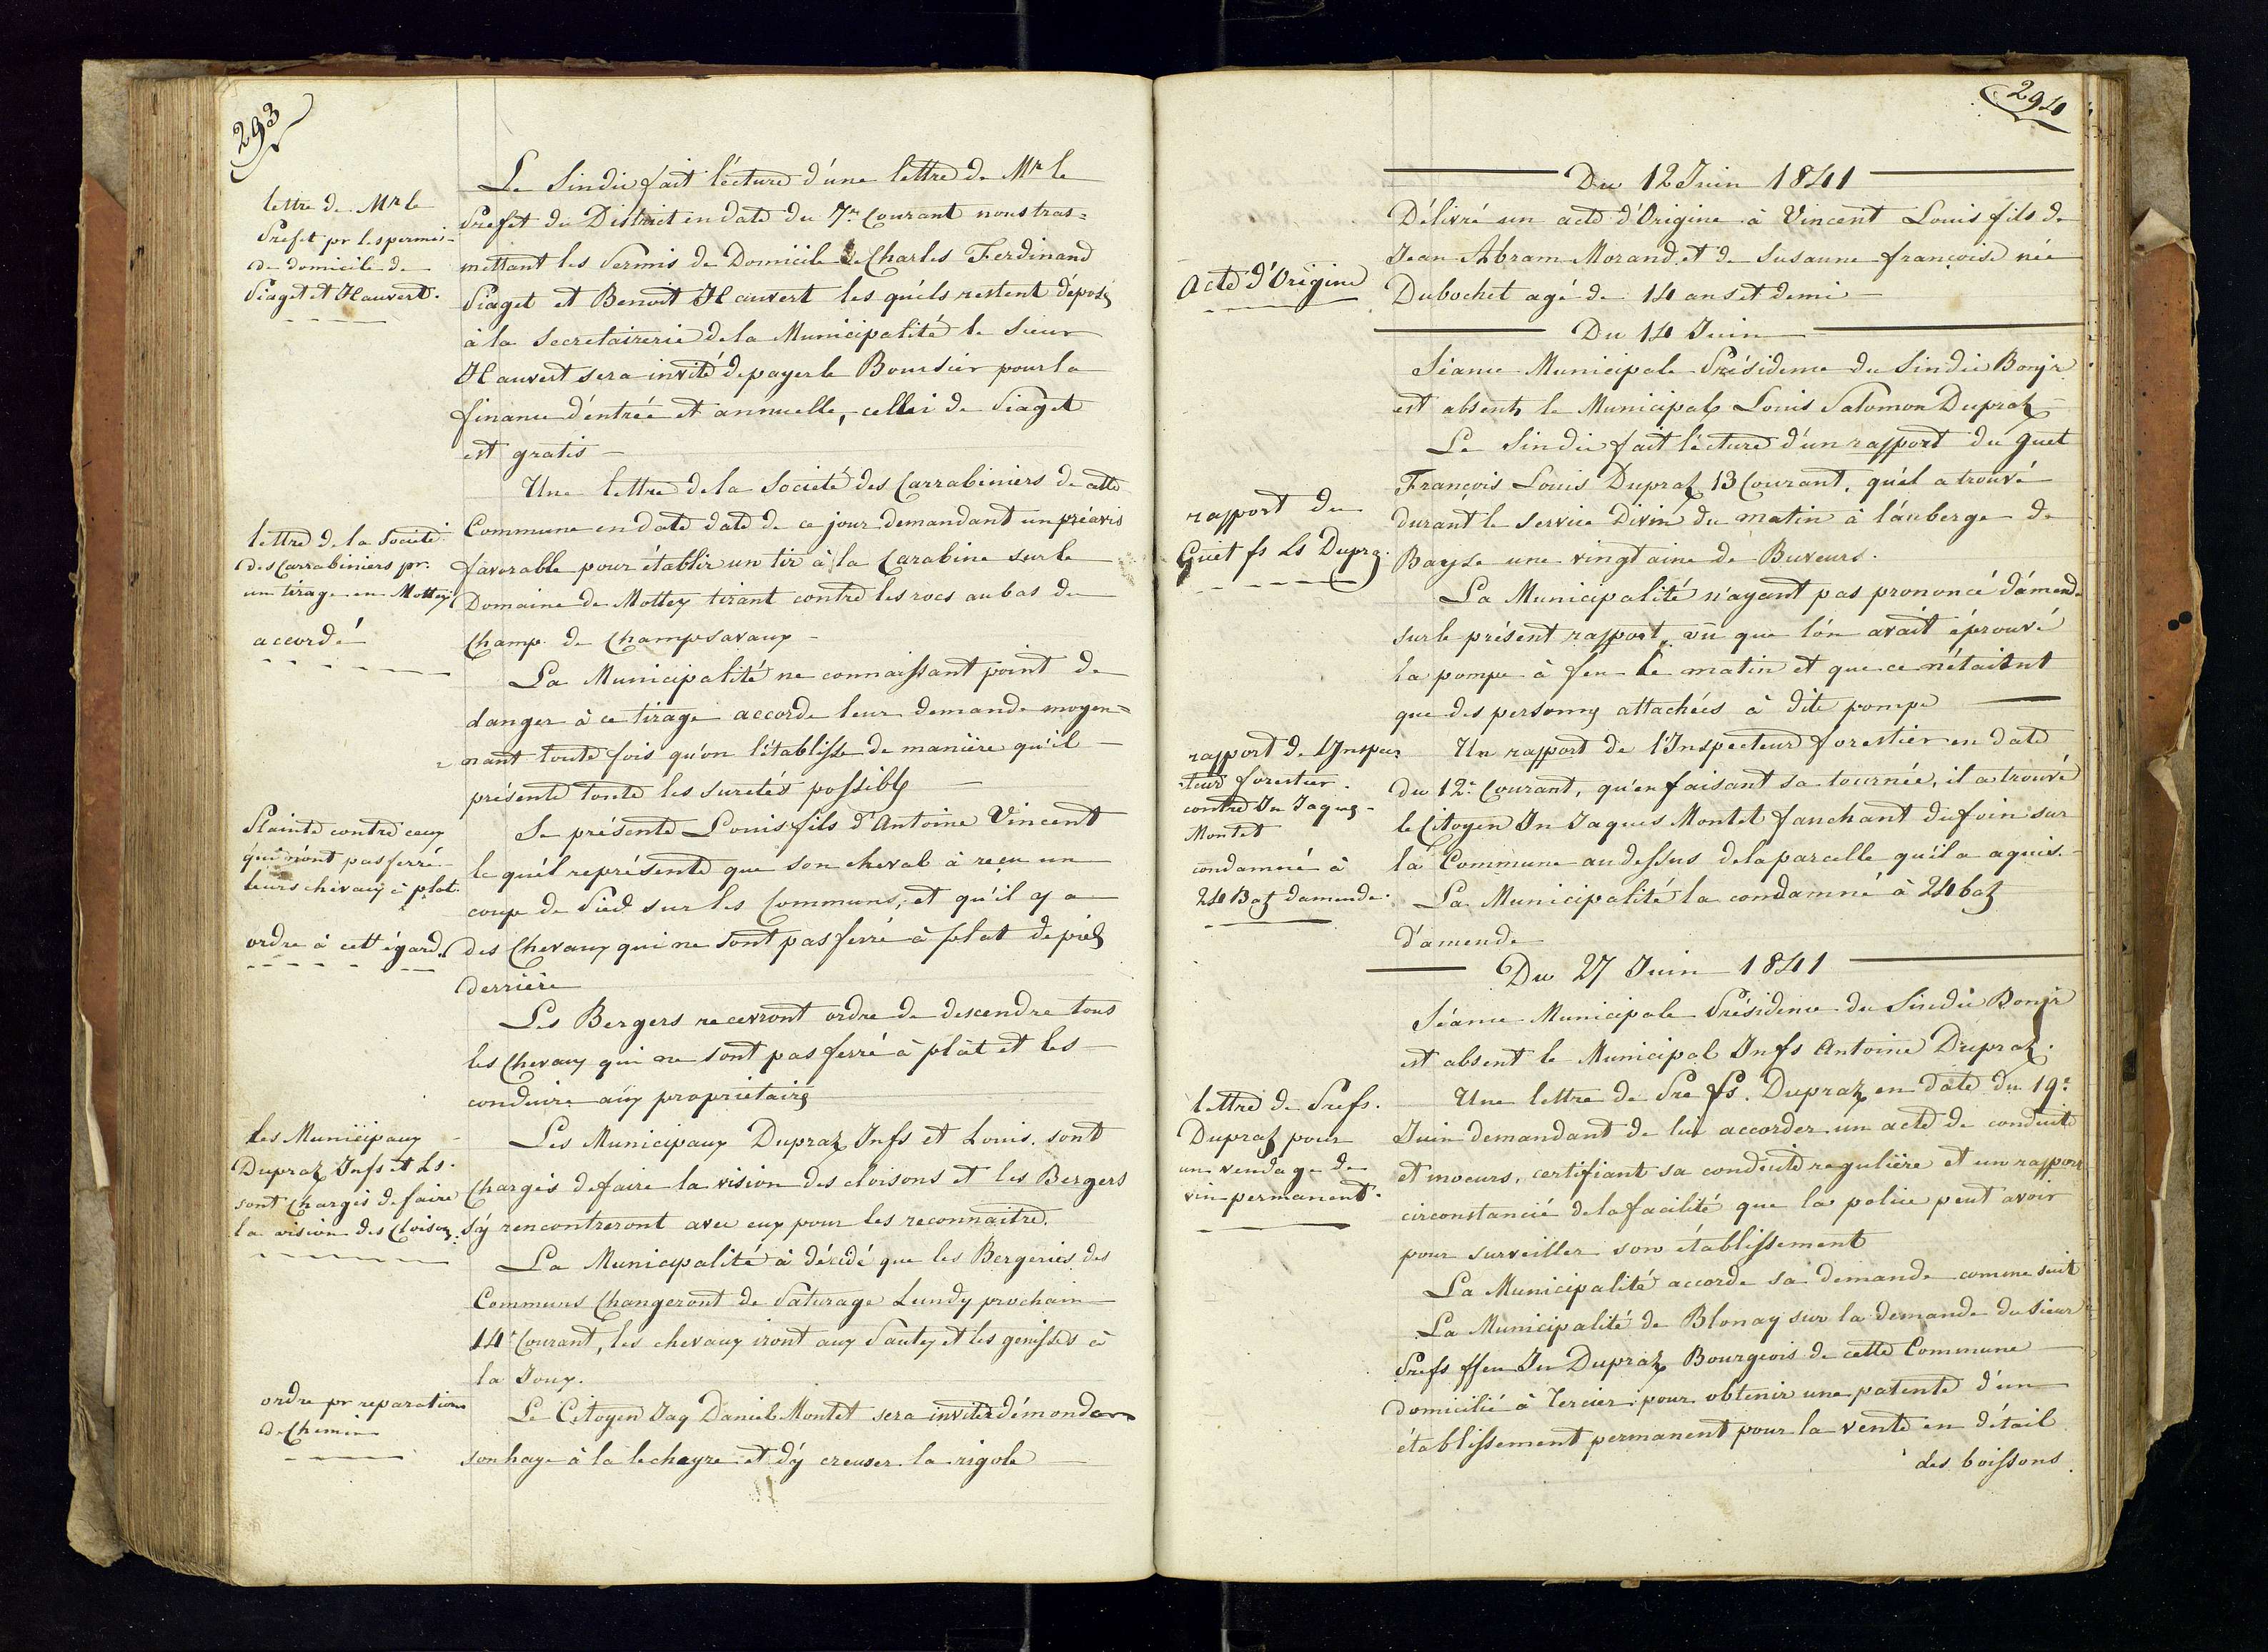 293
lettre de Mr le
Prefet pr les permis
de domicile de
Piaget et Hauvert.
Le Sindic fait lécture d'une lettre de Mr le
Prefet du District en date du 7e Courant nous tras=
mettant les Permis de Domicile de Charles Ferdinand
Piaget et Benoit Hauvert les qu'els restent déposés
à la Secretairerie de la Municipalité le Sieur
Hauvert sera invité de payer le Boursier pour la
finance d'entrée et annuelle, cellui de Piaget
est gratis –
lettre de la Societé
des Carrabiniers pr.
un tirage en Mottey
accordé
Une lettre de la Societé des Carrabiniers de cette
Commune en date date de ce jour demandant un préavis
favorable pour établir un tir à la Carabine sur le
Domaine de Mottey tirant contre les rocs au bas du
Champ de Champsavaux –
La Municipalité ne connaissant point de
danger à ce tirage accorde leur demande moyen=
nant toute fois qu'on l'établisse de manière qu'il
présente toute les suretés possibles
Plainte contre ceux
qui n'ont pas ferré
leurs chevaux à plat.
ordre à cett égard.
Se présente Louis fils d'Antoine Vincent
le qu'él représente que son cheval à reçu un
coup de Pied sur les Communs, et qu'il y a
des Chevaux qui ne sont pas ferré à plat de pieds
derrière
Les Bergers recevront ordre de descendre tous
les Chevaux qui ne sont pas ferré à plât et les
conduire aux propriétaires
Les Municipaux
Dupraz Jnfs et Ls.
sont Chargés de faire
la vision des Cloisons.
Les Municipaux Dupraz Jnfs et Louis. sont
Chargés de faire la vision des cloisons et les Bergers
s'y rencontreront avec eux pour les reconnaitre.
La Municipalité à décidé que les Bergeries des
Communs Changeront de Paturage Lundy prochain
14e Courant, les chevaux iront aux Pautex et les génisses à
la Joux.
ordre pr reparations
de Chemin
Le Citoyen Jaq Daniel Montet sera inviter démonder
son haye à la lechayre et d'y creuser la rigole
294
Du 12 Juin 1841
Acte d'Origine
Délivré un acte d'Origine à Vincent Louis fils de
Jean Abram Morand et de Susanne françoise née
Dubochet agé de 14 ans et demi –
Du 14 Juin
Séance Municipale Présidence du Sindic Bonjr
est absent le Municipal Louis Salomon Dupraz –
rapport du
Guet fs Ls Dupraz.
Le Sindic fait lécture d'un rapport du guet
François Louis Dupraz 13 Courant, qu'él a trouvé
durant le service Divin du matin à l'auberge de
Bayse une vingtaine de Buveurs.
La Municipalité n'ayant pas prononcé d'amende
sur le présent rapport, vû que l'on avait éprouvé
la pompe à feu le matin et que ce n'étaitent
que des personnes attachées à dite pompe
rapport de L'Inspec
teur forestier
contre Jn Jaques
Montet
condamné à
24 Baz d'amende.
Un rapport de l'Inspecteur forestier en date
du 12e Courant, qu'en faisant sa tournée, il a trouvé
le Citoyen Jn Jaques Montet fauchant du foin sur
la Commune au dessus de la parcelle qu'il a aquis.
La Municipalité la condamné à 24 baz
d'amende
Du 27 Juin 1841
Séance Municipale Présidence du Sindic Bonjr
est absent le Municipal Jnfs Antoine Dupraz.
lettre de Prefs.
Dupraz pour
un vendage de
vin permanent.
Une lettre de Pre fs. Dupraz en date du 19e
Juin demandant de lui accorder un acte de conduite
et moeurs, certifiant sa conduite regulière et un rapport
circonstancié de la facilité que la police peut avoir
pour surveiller son établissement
La Municipalité accorde sa demande comme suit
La Municipalité de Blonay sur la demande du Sieur
Prefs ffeu Jn Dupraz Bourgeois de cette Commune
domicilié à Tercier pour obtenir une patente d'un
établissement permanent pour la vente en détail
des boissons